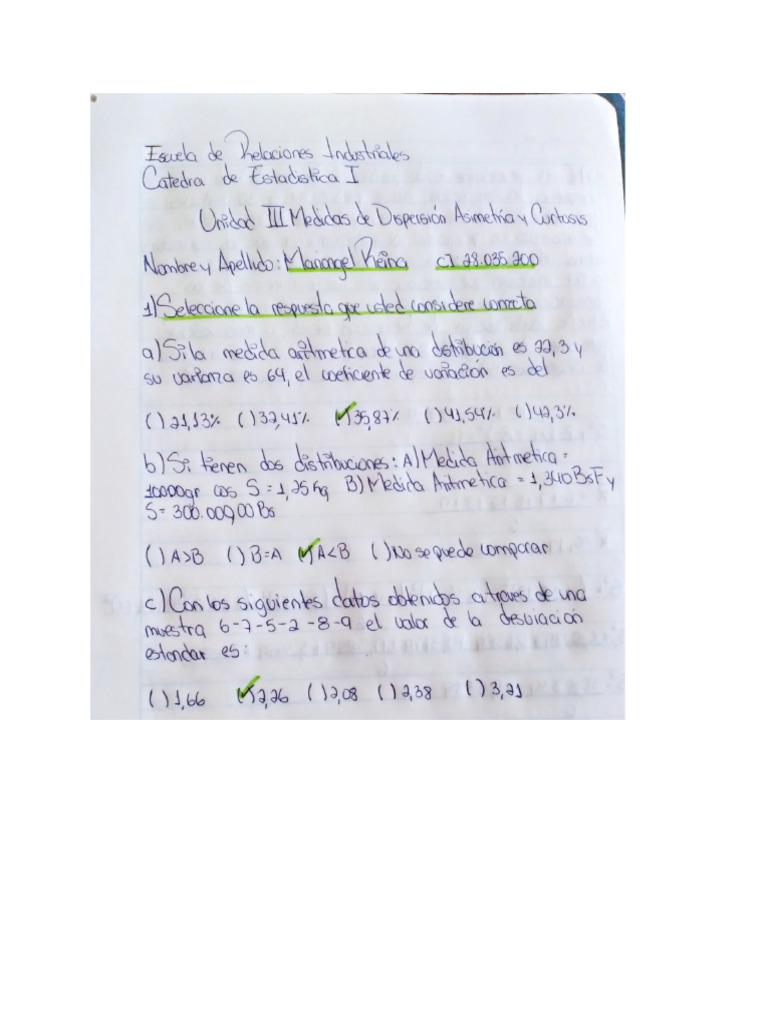 Escuela de Relaciones Industriales
Catedra de Estadistica I
Unidad III Medidas de Dispersión Asimetría y Curtosis
Nombre y Apellido: Mariangel Reina C.I 28.035.200
1) Seleccione la respuesta que usted considere correcta
a) Si la medida aritmetica de una distribución es 22,3 y
su varianza es 64, el coeficiente de variación es del
( ) 21,13% ( ) 32,41% (✓) 35,87% ( ) 41,54% ( ) 42,3%
b) Si tienen dos distribuciones: A) Medida Aritmetica =
10000gr cos S = 1,25 kg B) Medida Aritmetica = 1,340 BsF y
S = 300.000,00 Bs
( ) A>B ( ) B=A (✓) A<B ( ) No se puede comparar
c) Con los siguientes datos obtenidos a traves de una
muestra 6-7-5-2-8-9 el valor de la desviación
estandar es:
( ) 1,66 (✓) 2,26 ( ) 2,08 ( ) 2,38 ( ) 3,21